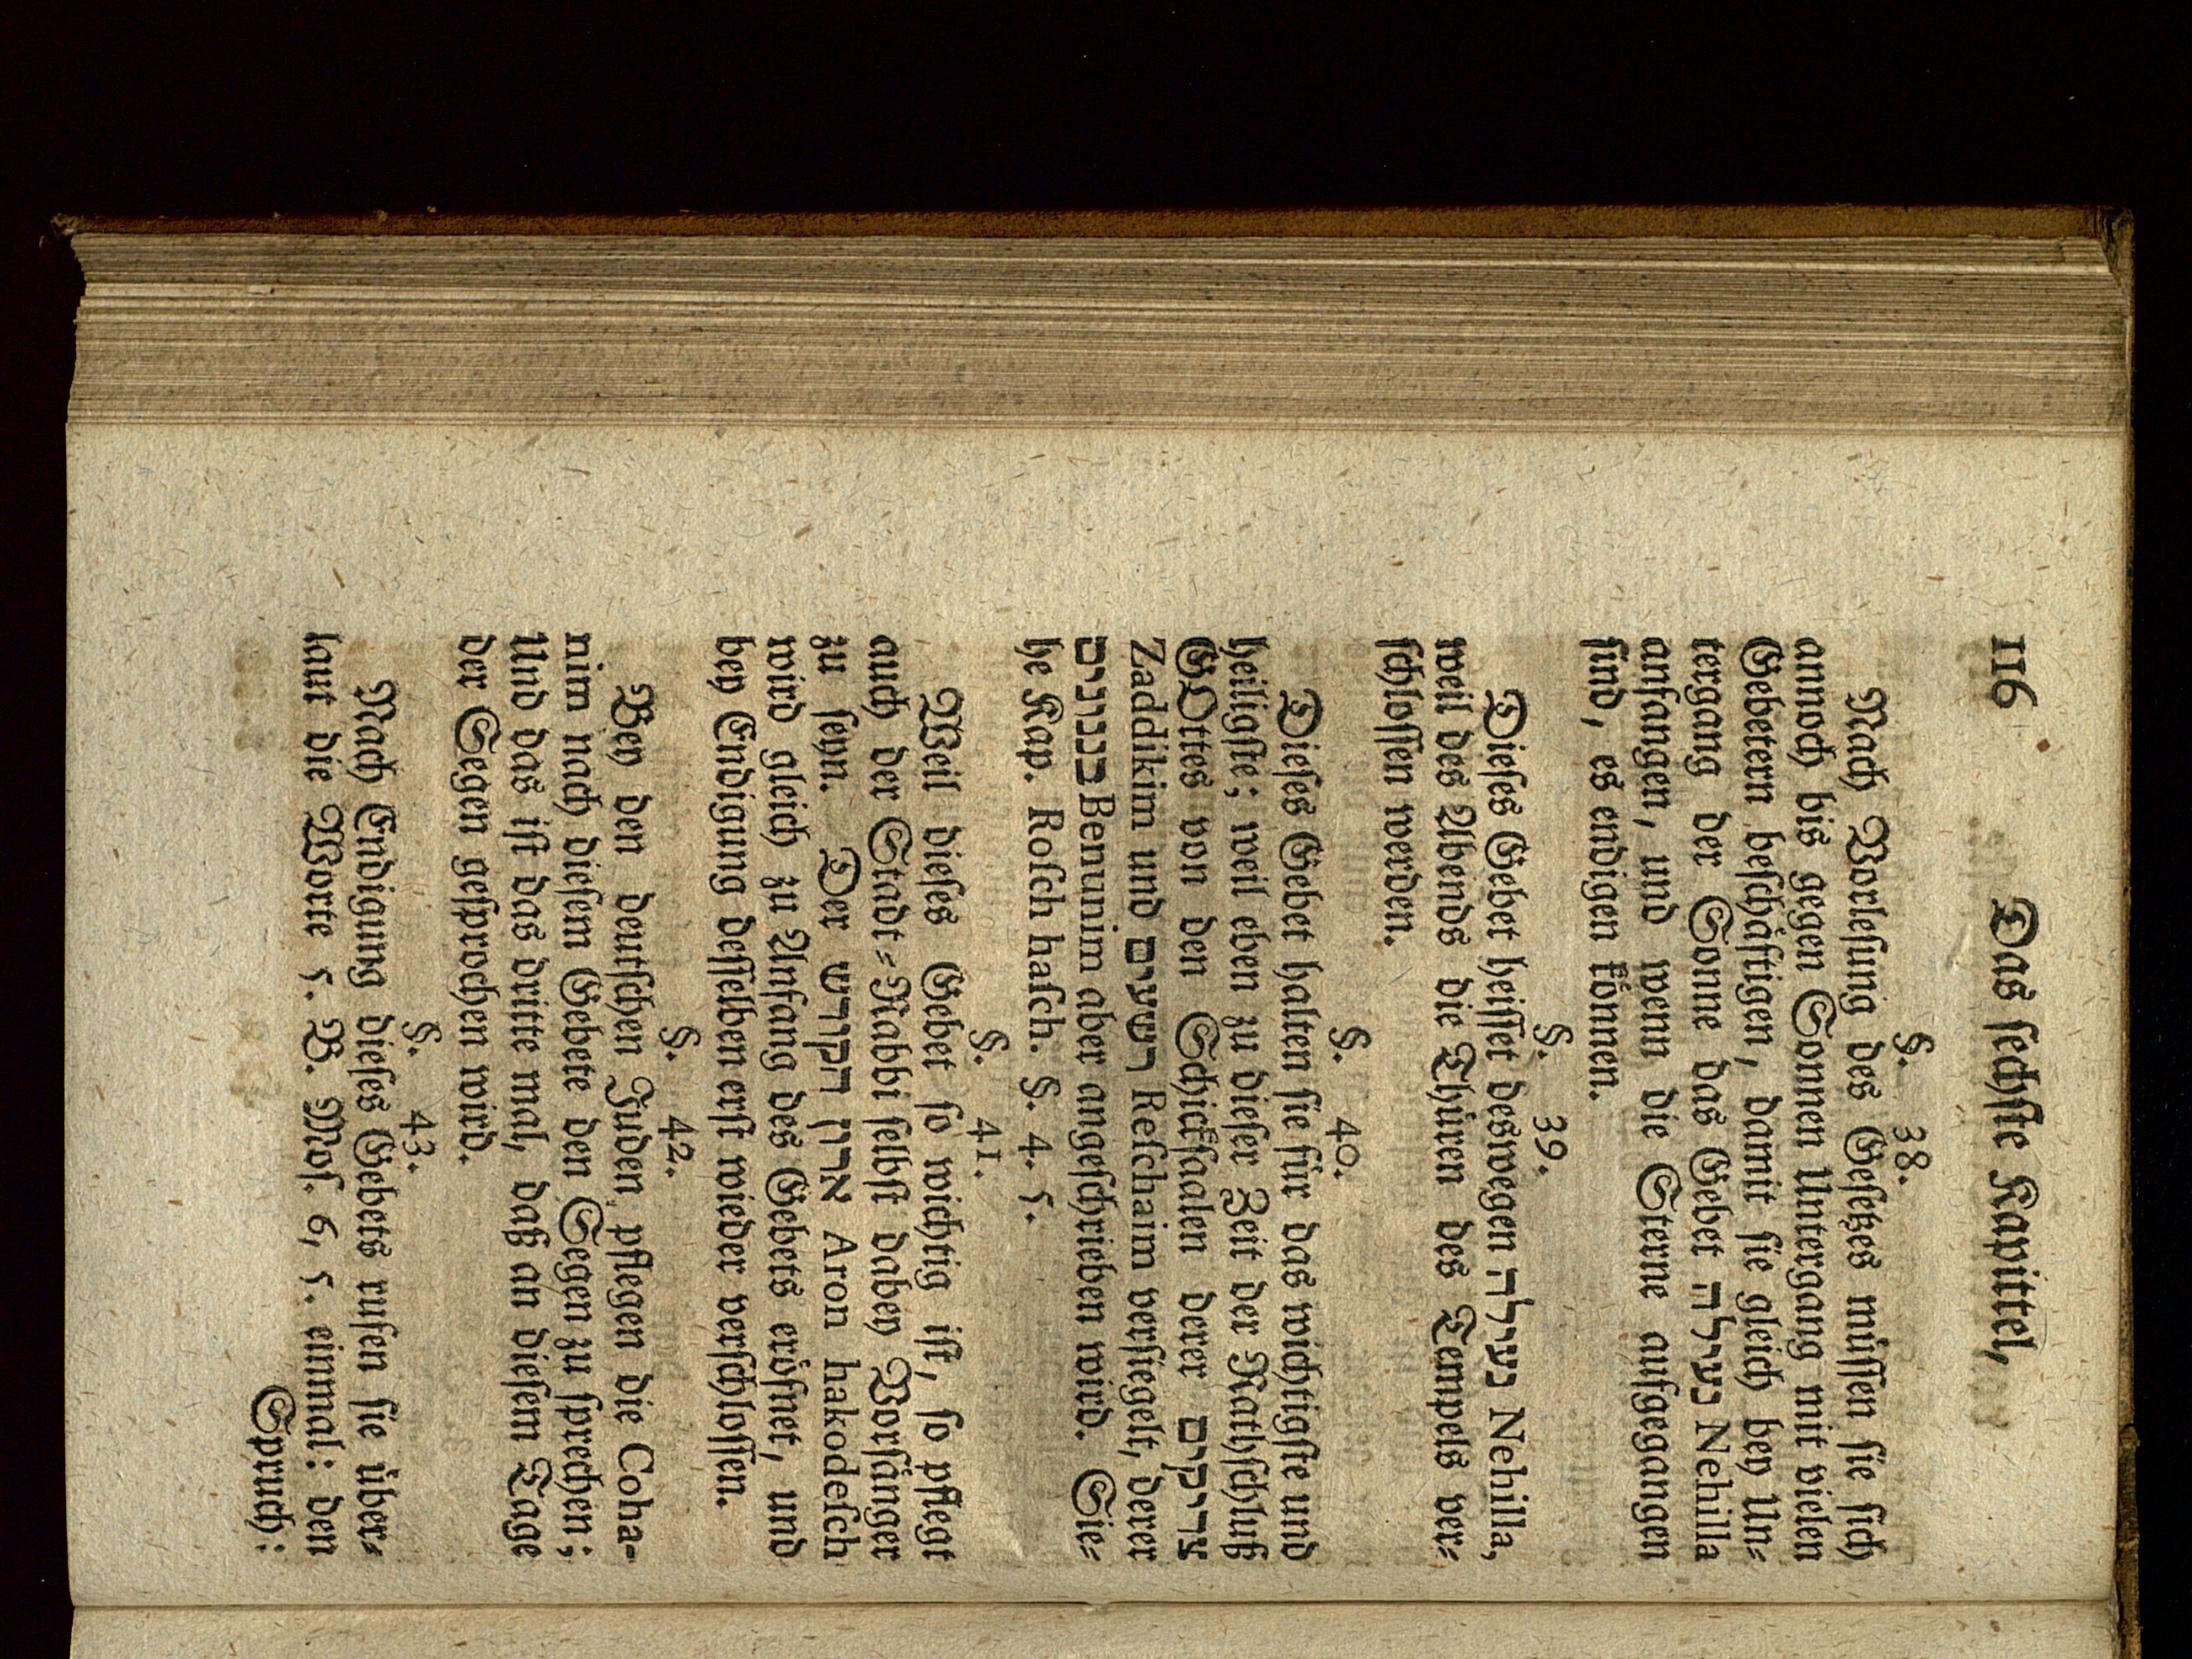 116 Das sechste Kapittel,
§. 38.
Nach Vorlesung des Gesetzes müssen sie sich
annoch bis gegen Sonnen Untergang mit vielen
Gebetern beschäftigen, damit sie gleich bey Un-
tergang der Sonne das Gebet נעילה Nehilla
anfangen, und wenn die Sterne aufgegangen
sind, es endigen können.
§. 39.
Dieses Gebet heisset deswegen נעילה Nehilla,
weil des Abends die Thüren des Tempels ver-
schlossen werden.
§. 40.
Dieses Gebet halten sie für das wichtigste und
heiligste; weil eben zu dieser Zeit der Rathschluß
GOttes von den Schicksaalen derer צדיקים
Zaddikim und רשעים Reschaim versiegelt, derer
בנונים Benunim aber angeschrieben wird. Sie-
he Kap. Rosch hasch. §. 4. 5.
§. 41.
Weil dieses Gebet so wichtig ist, so pflegt
auch der Stadt-Rabbi selbst dabey Vorsänger
zu seyn. Der ארון הקודש Aron hakodesch
wird gleich zu Anfang des Gebets eröfnet, und
bey Endigung desselben erst wieder verschlossen.
§. 42.
Bey den deutschen Juden pflegen die Coha-
nim nach diesem Gebete den Segen zu sprechen;
Und das ist das dritte mal, daß an diesem Tage
der Segen gesprochen wird.
§. 43.
Nach Endigung dieses Gebets rufen sie über-
laut die Worte 5. B. Mos. 6, 5. einmal: den
Spruch: